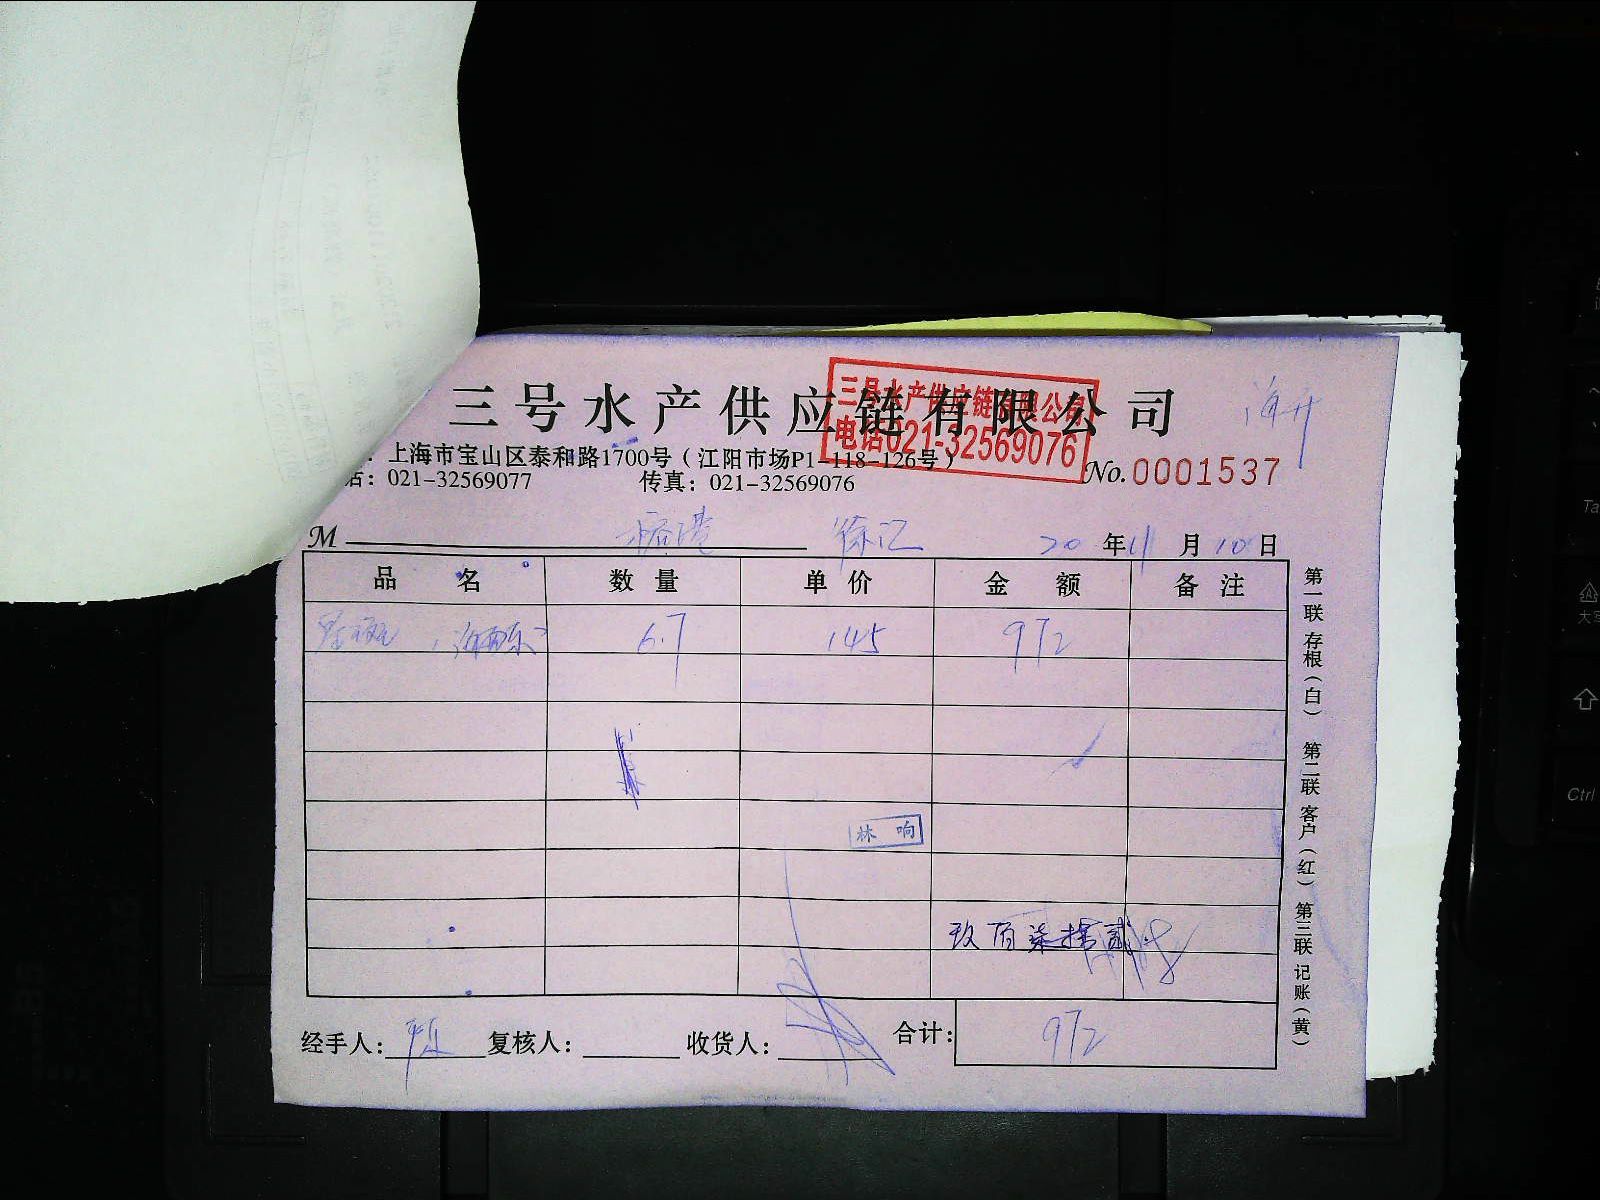 三号水产供应链有限公司
三号水产供应链有限公司
电话021-32569076
上海市宝山区泰和路1700号（江阳市场P1-118-126号）
话：021-32569077 传真：021-32569076
No.0001537
M 徐汇 20年11月10日
品名 数量 单价 金额 备注
6.7 145 972
林响
玖佰柒拾贰
经手人： 复核人： 收货人： 合计：972
第一联存根（白） 第二联客户（红） 第三联记账（黄）
Ctrl